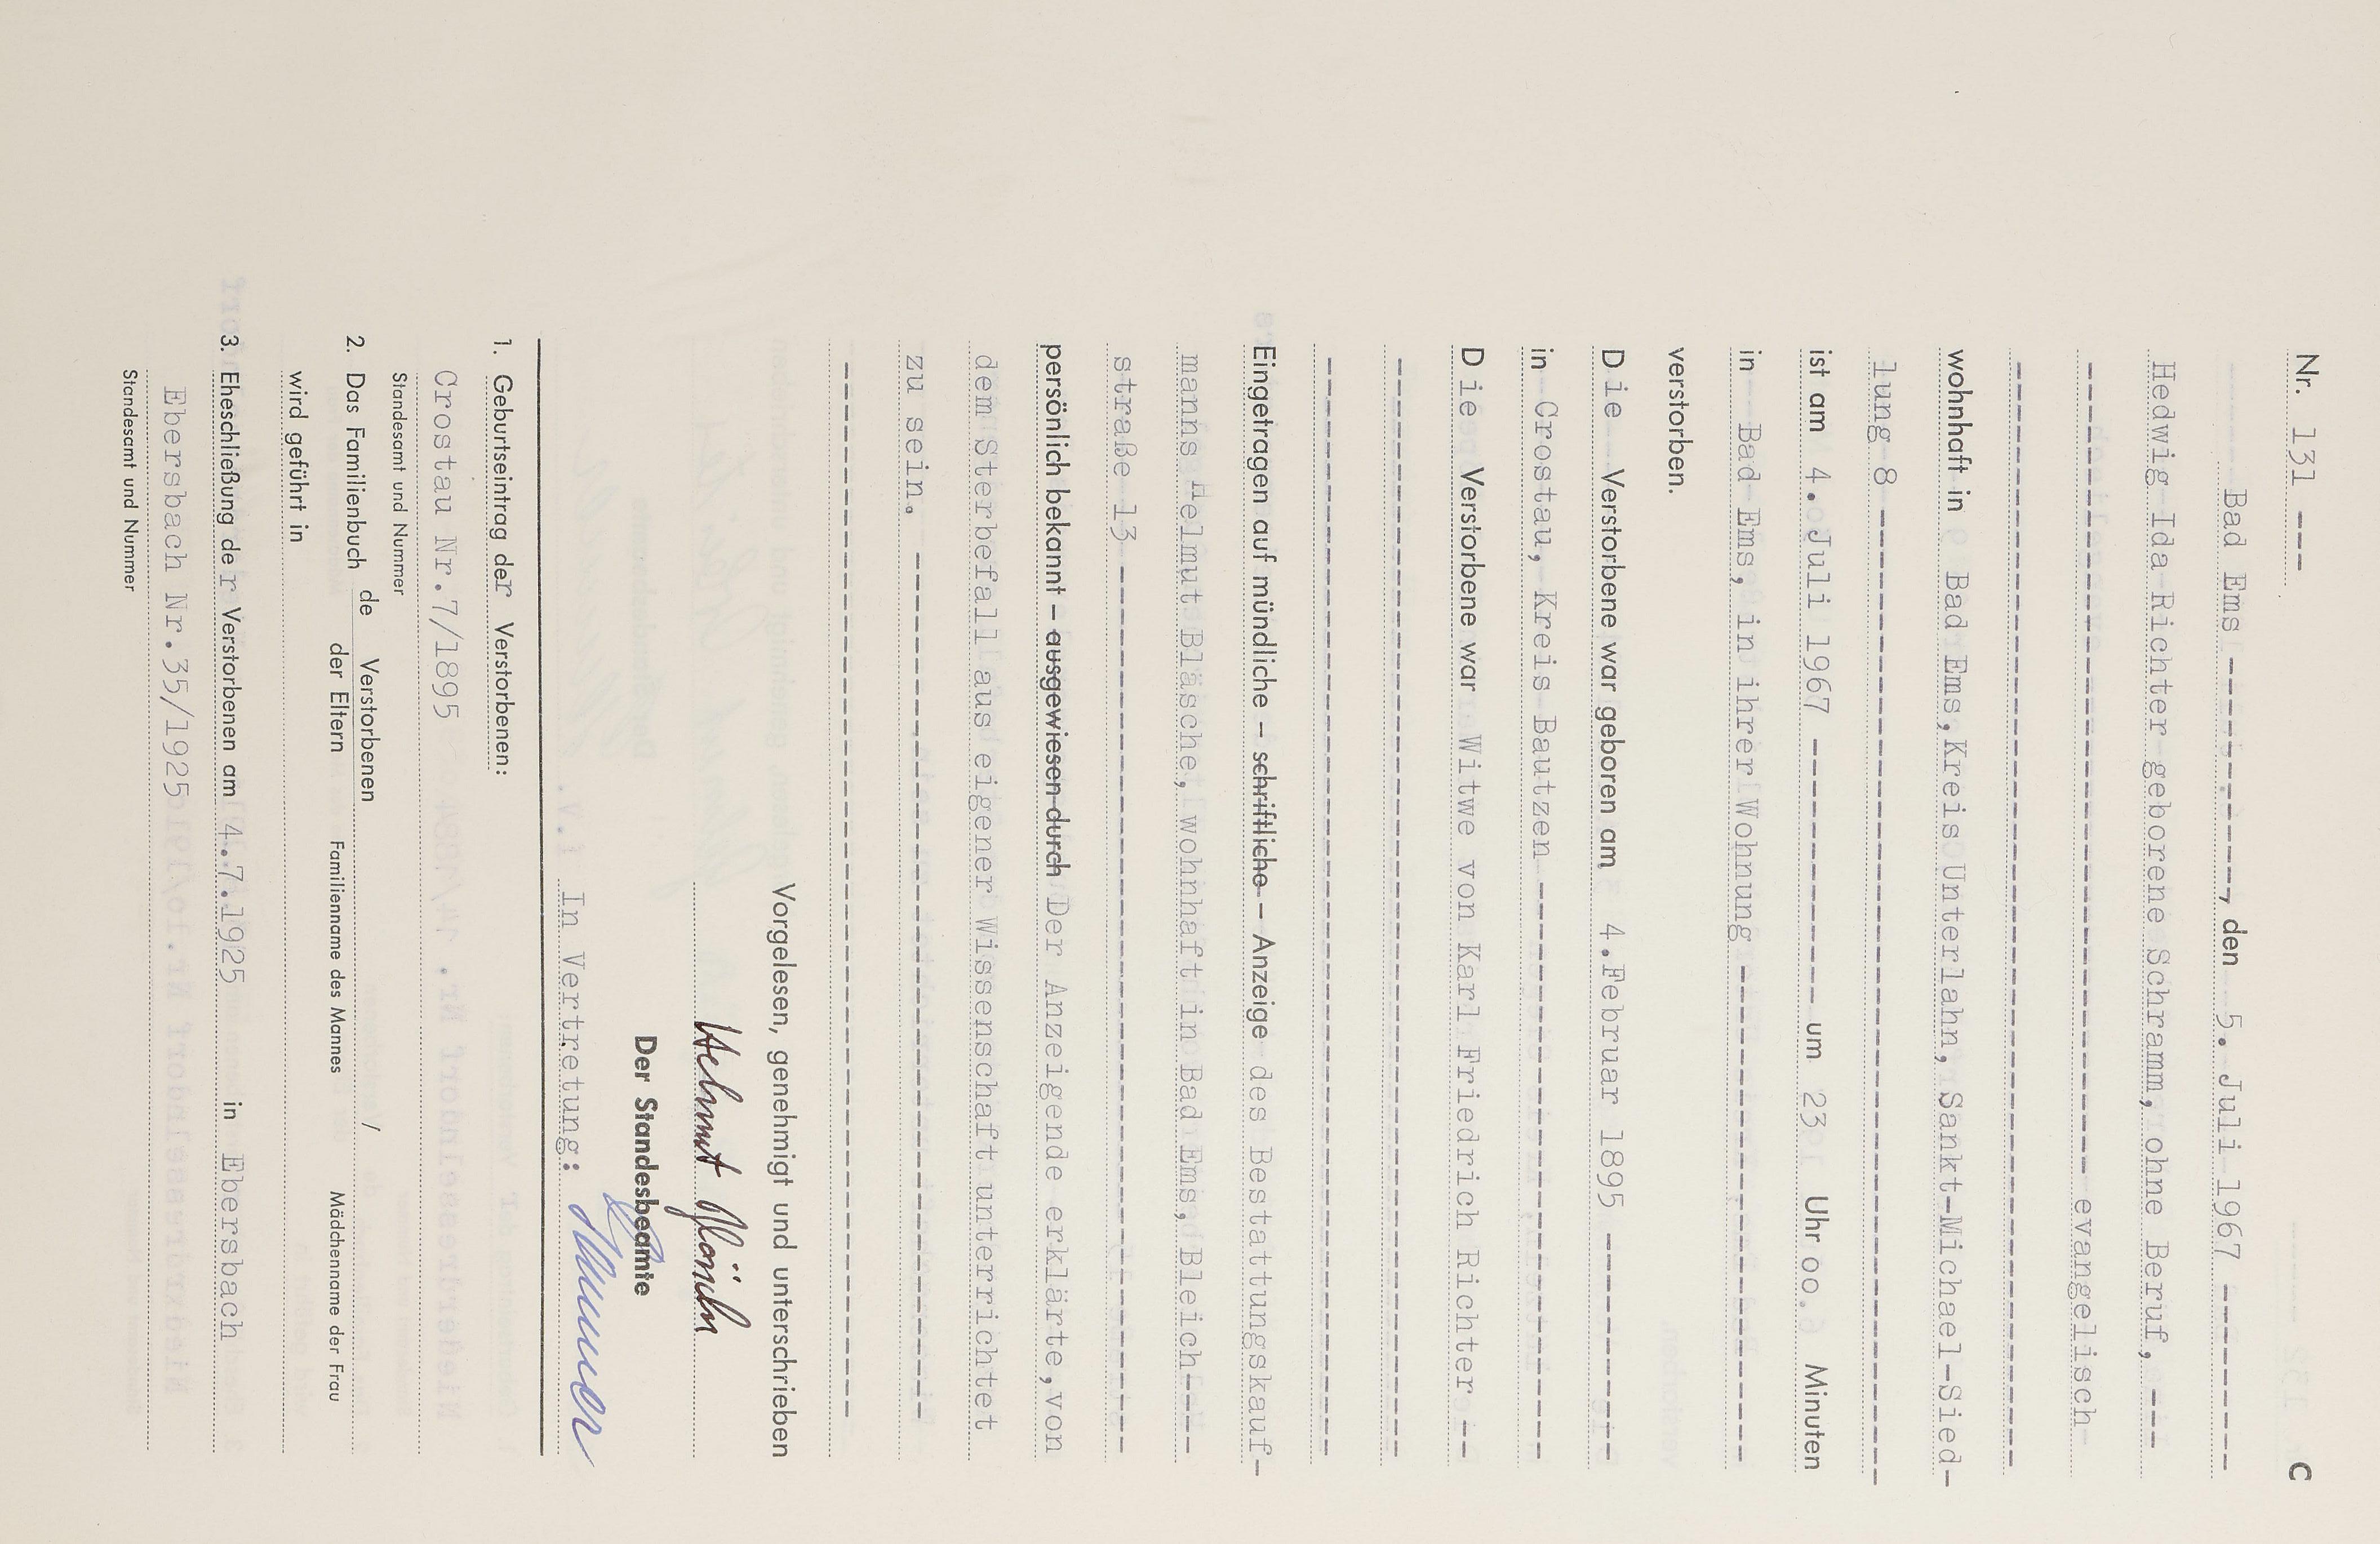 Nr. 131 ---- C
Bad Ems ----------------, den 5. Juli 1967 ----------
Hedwig Ida Richter geborene Schramm, ohne Beruf, ----
evangelisch
wohnhaft in Bad Ems, Kreis Unterlahn, Sankt-Michael-Sied-
lung 8 ----------
ist am 4. Juli 1967 ---------------- um 23 Uhr oo Minuten
in Bad Ems, in ihrer Wohnung ----------
verstorben.
Die Verstorbene war geboren am 4.Februar 1895 ----------
in Crostau, Kreis Bautzen ----------
Die Verstorbene war Witwe von Karl Friedrich Richter --
Eingetragen auf mündliche – schriftliche – Anzeige des Bestattungskauf-
manns Helmut Bläsche, wohnhaft in Bad Ems, Bleich----
straße 13 ----------
persönlich bekannt – ausgewiesen durch Der Anzeigende erklärte, von
dem Sterbefall aus eigener Wissenschaft unterrichtet
zu sein. ----------
Vorgelesen, genehmigt und unterschrieben
Helmut
Der Standesbeamte
In Vertretung:
1. Geburtseintrag der Verstorbenen:
Crostau Nr.7/1895
Standesamt und Nummer
2. Das Familienbuch de Verstorbenen /
der Eltern Familienname des Mannes Mädchenname der Frau
wird geführt in
3. Eheschließung der Verstorbenen am 4.7.1925 in Ebersbach
Ebersbach Nr.35/1925
Standesamt und Nummer